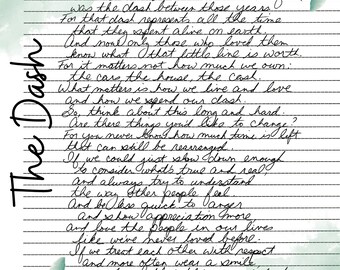 The Dash
was the dash between those years
For that dash represents all the time
that they spent alive on earth.
And now only those who loved them
know what that little line is worth.
For it matters not how much we own:
the cars, the house, the cash.
What matters is how we live and love
and how we spend our dash.
So, think about this long and hard.
Are there things you'd like to change?
For you never know how much time is left
that can still be rearranged.
If we could just slow down enough
to consider what's true and real
And always try to understand
the way other people feel
And be less quick to anger
and show appreciation more
And love the people in our lives
like we've never loved before.
If we treat each other with respect
and more often wear a smile